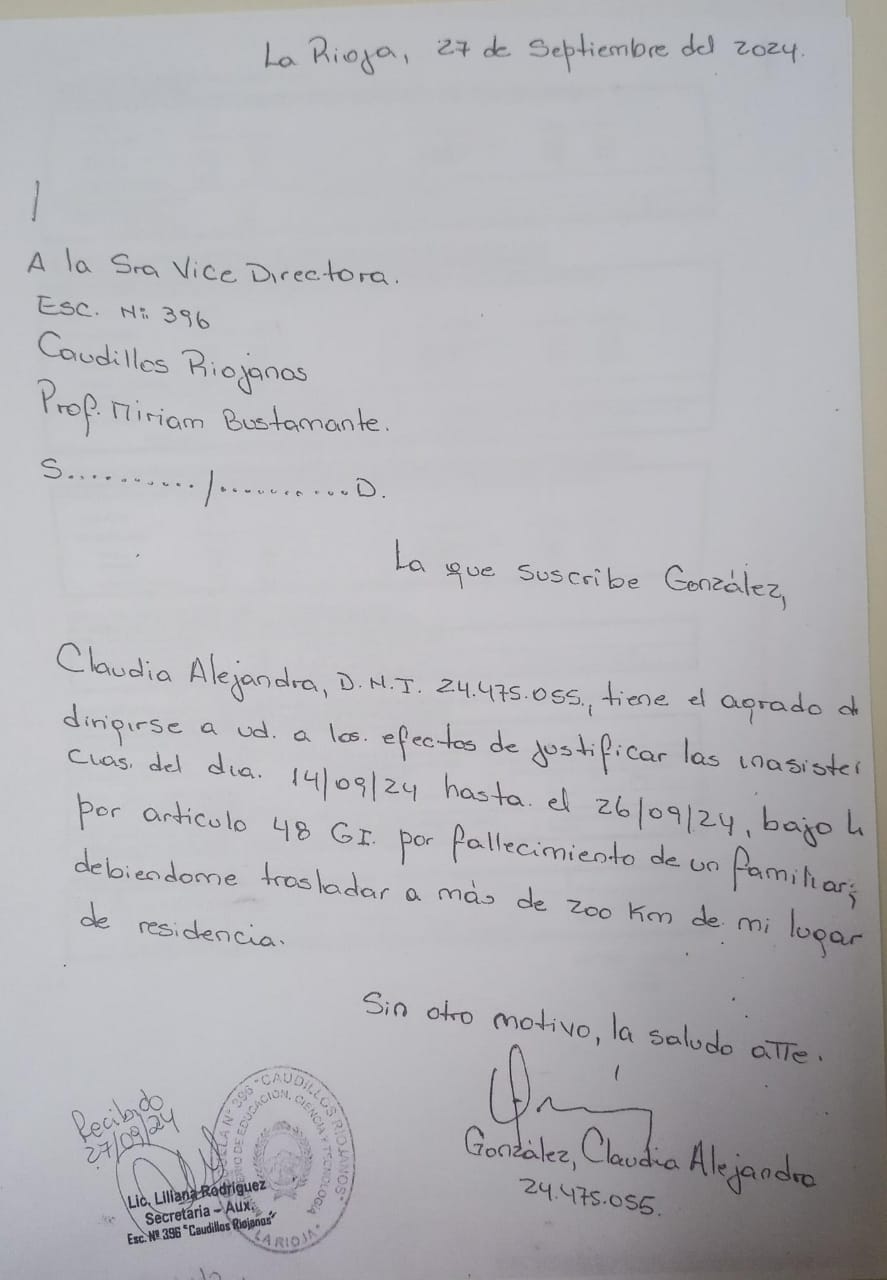 La Rioja, 27 de Septiembre del 2024.
A la Sra Vice Directora.
Esc. N: 396
Caudillos Riojanos
Prof. Miriam Bustamante.
S........../...........D.
La que suscribe González,
Claudia Alejandra, D.N.I. 24.475.055., tiene el agrado d
dirigirse a ud. a los. efectos de justificar las inasisten
cias. del dia. 14/09/24 hasta. el 26/09/24, bajo l
por articulo 48 GI. por fallecimiento de un familiar;
debiendome trasladar a más de 200 Km de mi lugar
de residencia.
Sin otro motivo, la saludo atte.
González, Claudia Alejandra
24.475.055.
Recibido
27/09/24
Lic. Liliana Rodriguez
Secretaria - Aux.
Esc. Nº 396 "Caudillos Riojanos"
ELA Nº 396 "CAUDILLOS RIOJANOS"
RIO DE EDUCACION, CIENCIA Y TECNOLOGIA
LA RIOJA